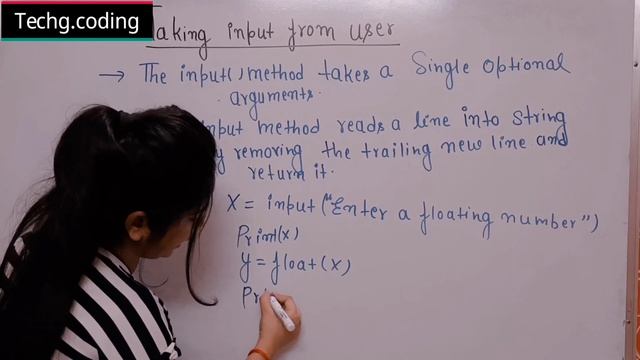 Techg.coding
Taking input from user
→ The input() method takes a Single Optional
arguments.
input method reads a line into string
by removing the trailing new line and
return it.
X = input("Enter a floating number")
Print(X)
y = float(X)
Pri